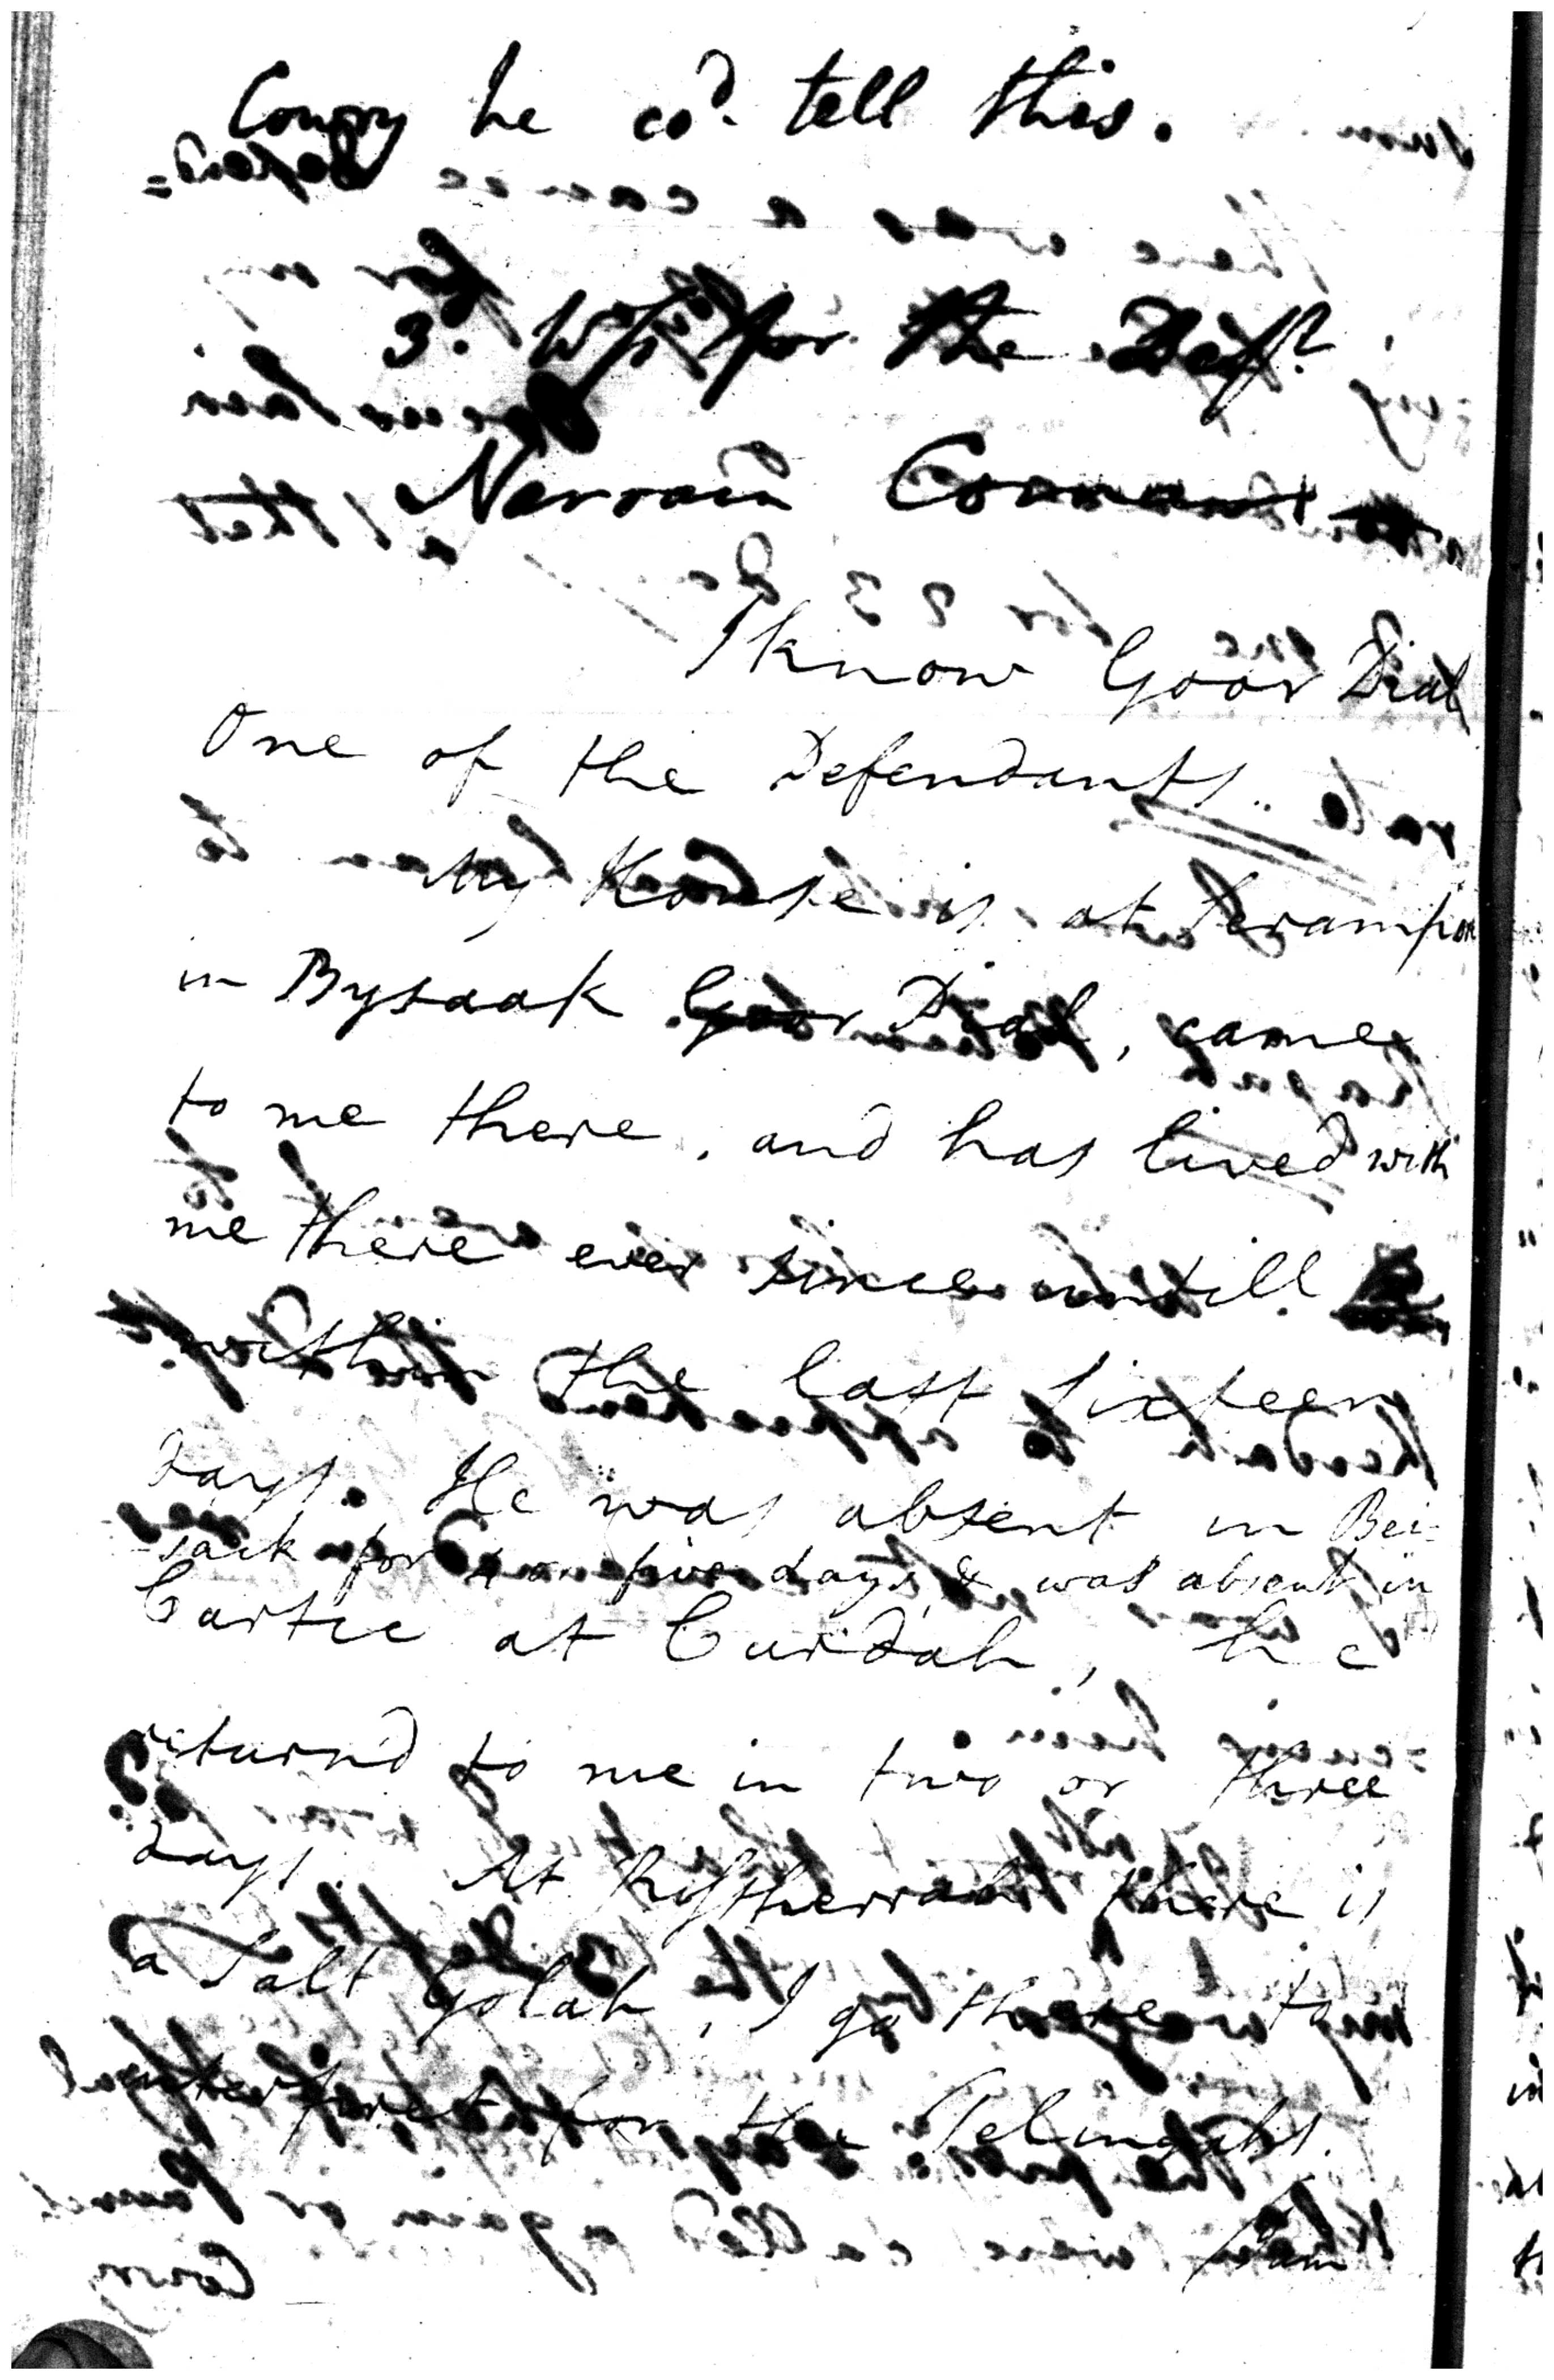 Compy he cod. tell this.
3d. Wss for the Deft.
Narrain
I know Goor Dial
One of the Defendants.
My House is at Serampore
in Bysaak Goor Dial, came
to me there, and has lived with
me there ever since untill
within the last sixteen
Days. He was absent in Bei-
sack for 4 or five days, & was absent in
Cartic at Curdah, he
returnd to me in two or three
Days. At there is
a Salt Golah, I go there to
interpret for the Telingahs.
I am